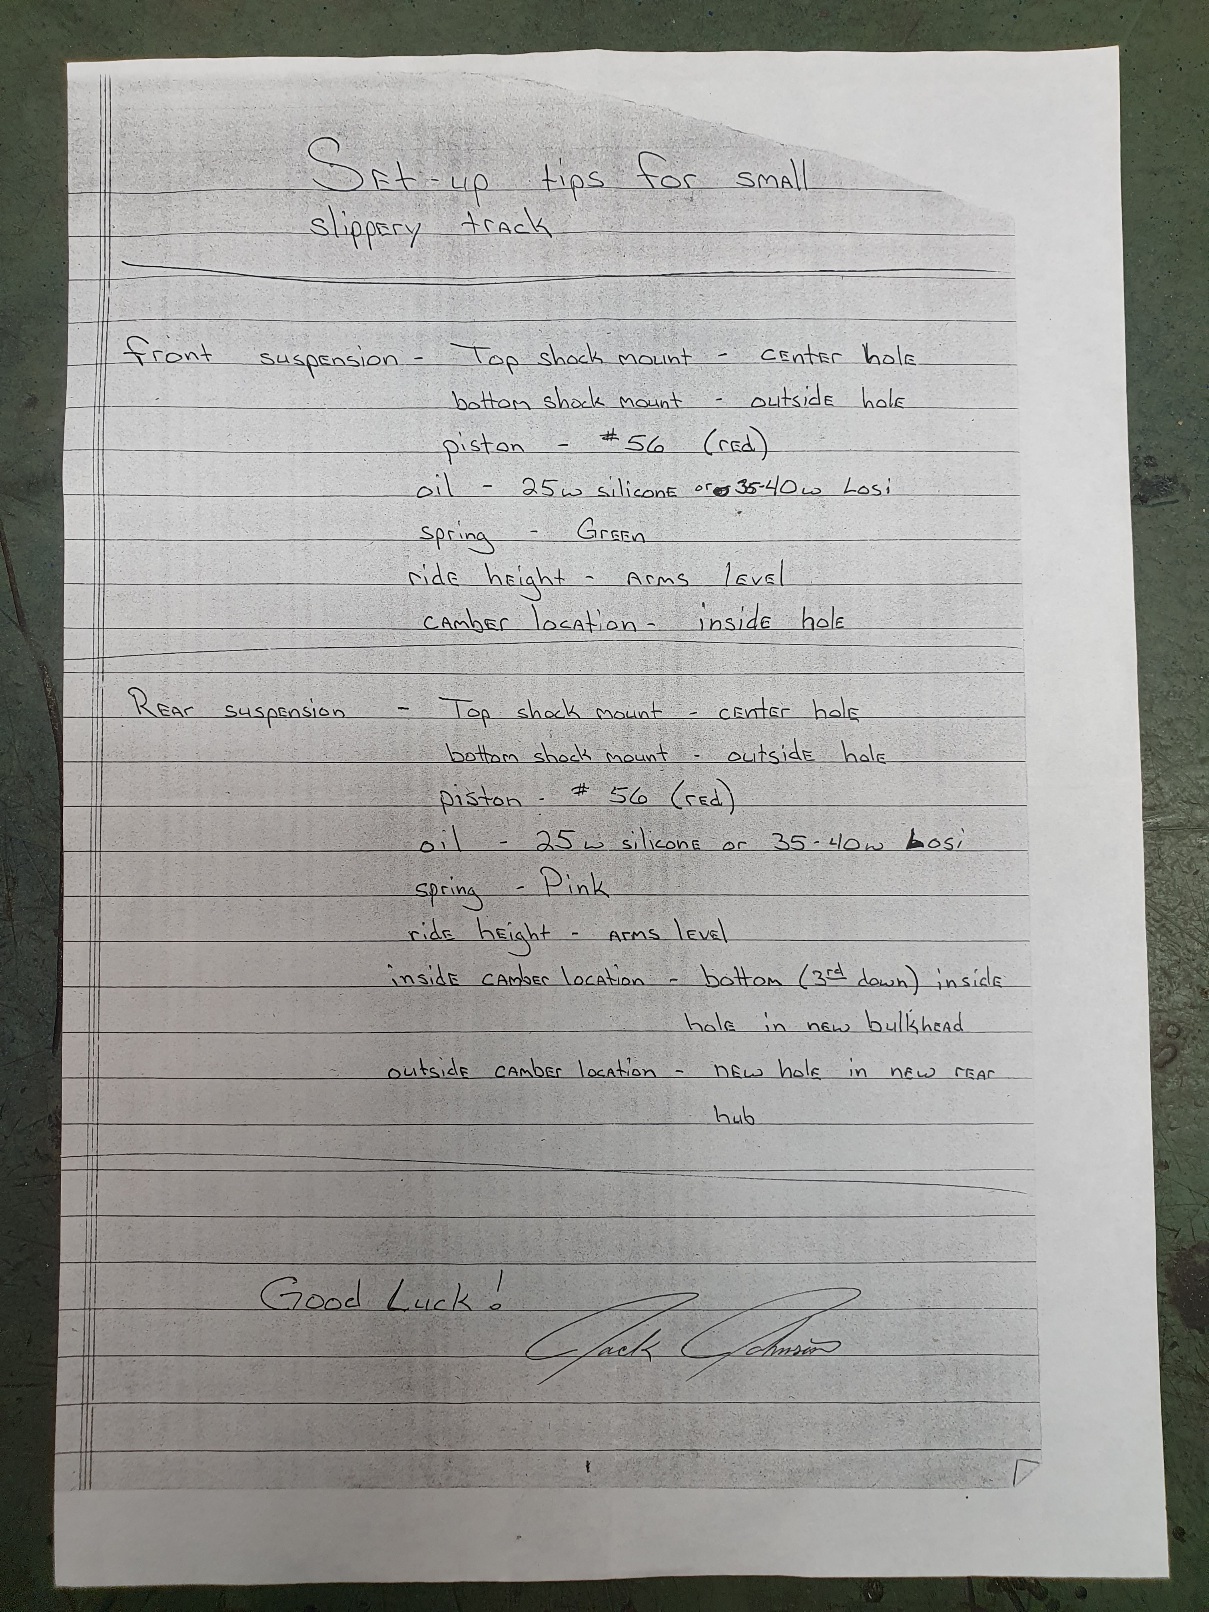 Set-up tips for small
slippery track
front suspension - Top shock mount - center hole
bottom shock mount - outside hole
piston - #56 (red)
oil - 25w silicone or 35-40w Losi
spring - Green
ride height - Arms level
camber location - inside hole
Rear suspension - Top shock mount - center hole
bottom shock mount - outside hole
piston - # 56 (red)
oil - 25w silicone or 35-40w Losi
spring - Pink
ride height - Arms level
inside camber location - bottom (3rd down) inside
hole in new bulkhead
outside camber location - new hole in new rear
hub
Good Luck!
Jack Johnson